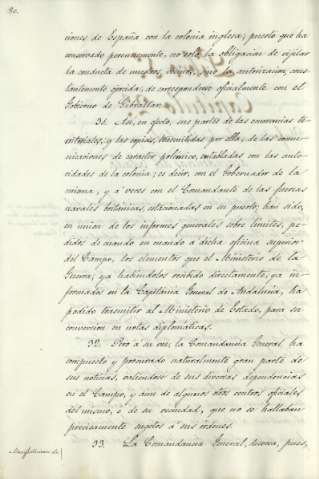 80.
ciones de España con la colonia inglesa; puesto que ha
conservado perennemente, no solo la obligacion de vigilar
la conducta de nuestros vecinos, sino la autorizacion, cons-
tantemente ejercida, de corresponderse oficialmente con el
Gobierno de Gibraltar.
31. Así, en efecto, sus partes de las ocurrencias te-
rritoriales, y las copias, trasmitidas por ella, de las comu-
nicaciones de caracter polémico, entabladas con las auto-
ridades de la colonia, es decir, con el Gobernador de la
misma, y á veces con el Comandante de las fuerzas
navales británicas, estacionadas en su puerto, han sido,
en union de los informes generales sobre límites, pe-
didos de cuando en cuando á dicha oficina superior
del Campo, los elementos que el Ministerio de la
Guerra, ya habiéndolos recibido directamente, ya in-
formados en la Capitanía General de Andalucía, ha
podido trasmitir al Ministerio de Estado, para su
conversion en notas diplomáticas.
32. Pero á su vez, la Comandancia General ha
compuesto y promovido naturalmente gran parte de
sus noticias, valiéndose de sus diversas dependencias
en el Campo, y aun de algunos otros centros oficiales
del mismo, ó de su vecindad, que no se hallaban
precisamente sujetos á sus órdenes.
33. La Comandancia General, necesita, pues,